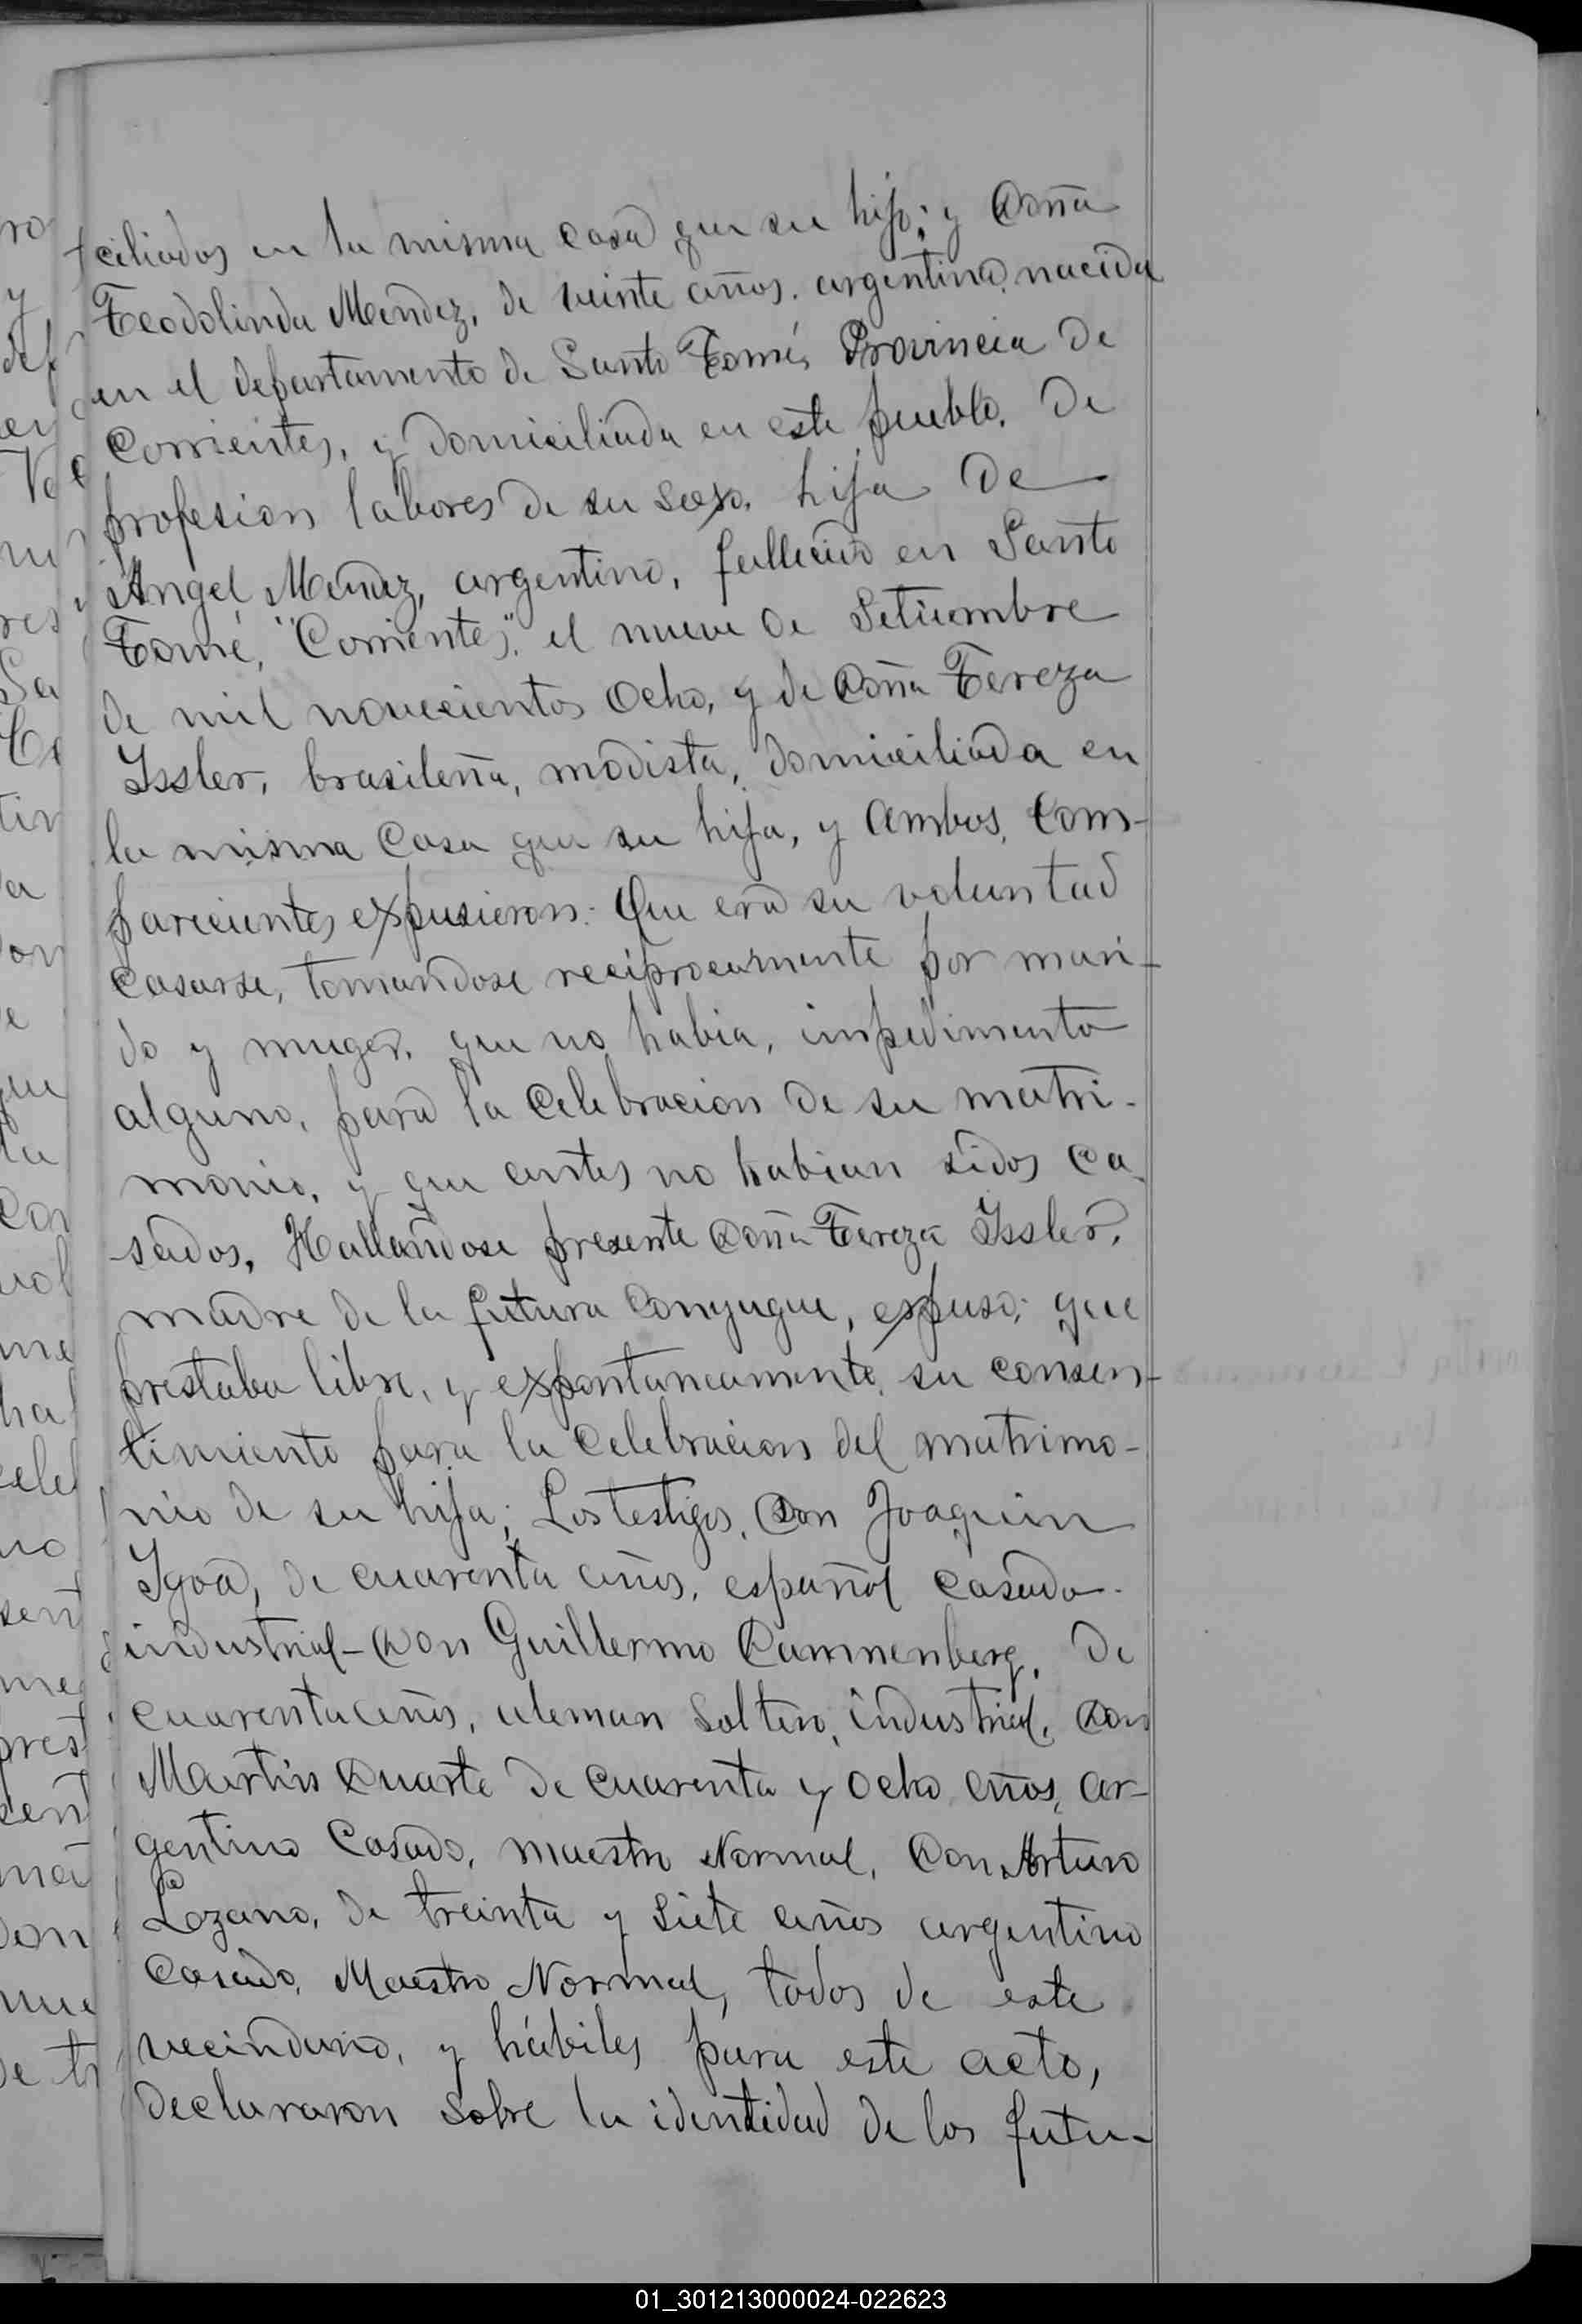 ciliados en la misma casa que su hijo; y Doña
Teodolinda Mendez, de veinte años, argentina, nacida
en el departamento de Santo Tomé, Provincia de
Corrientes, y domiciliada en este pueblo, de
profesion labores de su sexo, hija de
Angel Mendez, argentino, fallecido en Santo
Tomé, "Corrientes", el nueve de Setiembre
de mil novecientos ocho, y de Doña Tereza
Issler, brasileña, modista, domiciliada en
la misma casa que su hija, y ambos, com-
parecientes expusieron: Que era su voluntad
casarse, tomandose reciprocamente por mari-
do y muger, que no habia, impedimento
alguno, para la celebracion de su matri-
monio, y que antes no habian sidos ca
sados, Hallandose presente Doña Tereza Issler,
madre de la futura conyugue, expuso; que
prestaba libre, y expontaneamente, su consen-
timiento para la celebracion del matrimo-
nio de su hija; Los testigos, Don Joaquin
Igoa, de cuarenta años, español casado
industrial - Don Guillermo Dannenberg, de
cuarenta años, aleman soltero, industrial, Don
Martin Duarte de cuarenta y ocho años, ar-
gentino casado, maestro Normal, Don Arturo
Lozano, de treinta y siete años argentino
casado, Maestro Normal, todos de este
vecindario, y hábiles para este acto,
declararon sobre la identidad de los futu-
01_301213000024-022623